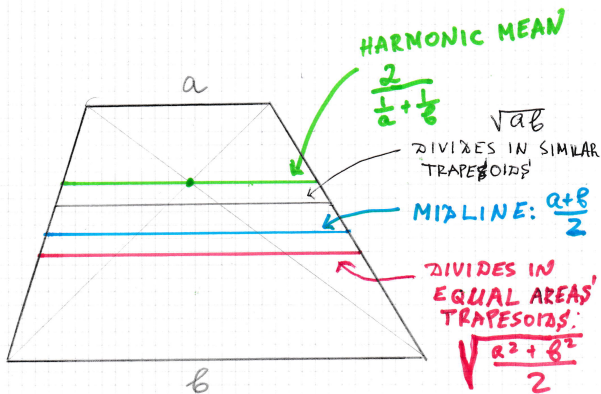 a
HARMONIC MEAN
2
1/a + 1/b
√ab
DIVIDES IN SIMILAR
TRAPESOIDS
MIDLINE: a+b/2
DIVIDES IN
EQUAL AREAS
TRAPESOIDS:
√a²+b²/2
b